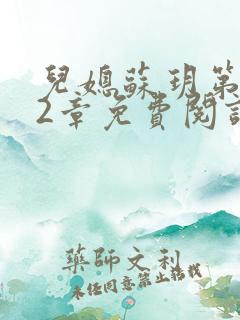 兒媳蘇玥第
2章免費閱讀
藥師文利
未任同意禁止搭載